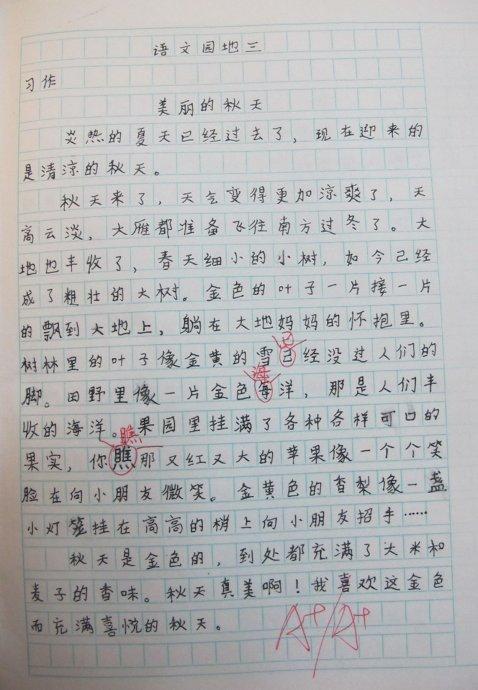 语文园地三
习作
美丽的秋天
炎热的夏天已经过去了，现在迎来的
是清凉的秋天。
秋天来了，天气变得更加凉爽了，天
高云淡，大雁都准备飞往南方过冬了。大
地也丰收了，春天细小的小树，如今已经
成了粗壮的大树。金色的叶子一片接一片
的飘到大地上，躺在大地妈妈的怀抱里。
已
树林里的叶子像金黄的雪已经没过人们的
海
脚。田野里像一片金色海洋，那是人们丰
收的海洋。果园里挂满了各种各样可口的
瞧
果实，你瞧那又红又大的苹果像一个个笑
脸在向小朋友微笑。金黄色的香梨像一盏
小灯笼挂在高高的梢上向小朋友招手……
秋天是金色的，到处都充满了大米和
麦子的香味。秋天真美啊！我喜欢这金色
而充满喜悦的秋天。
A+/A+